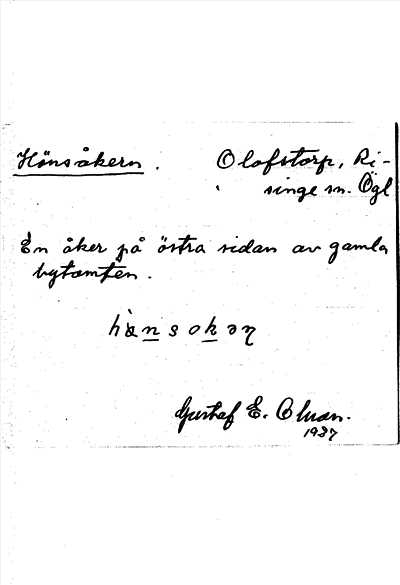 Hönsåkern. Olofstorp, Ri-
singe sn. Ögl
En åker på östra sidan av gamla
bytomten.
Gustaf E. Olsson.
1937